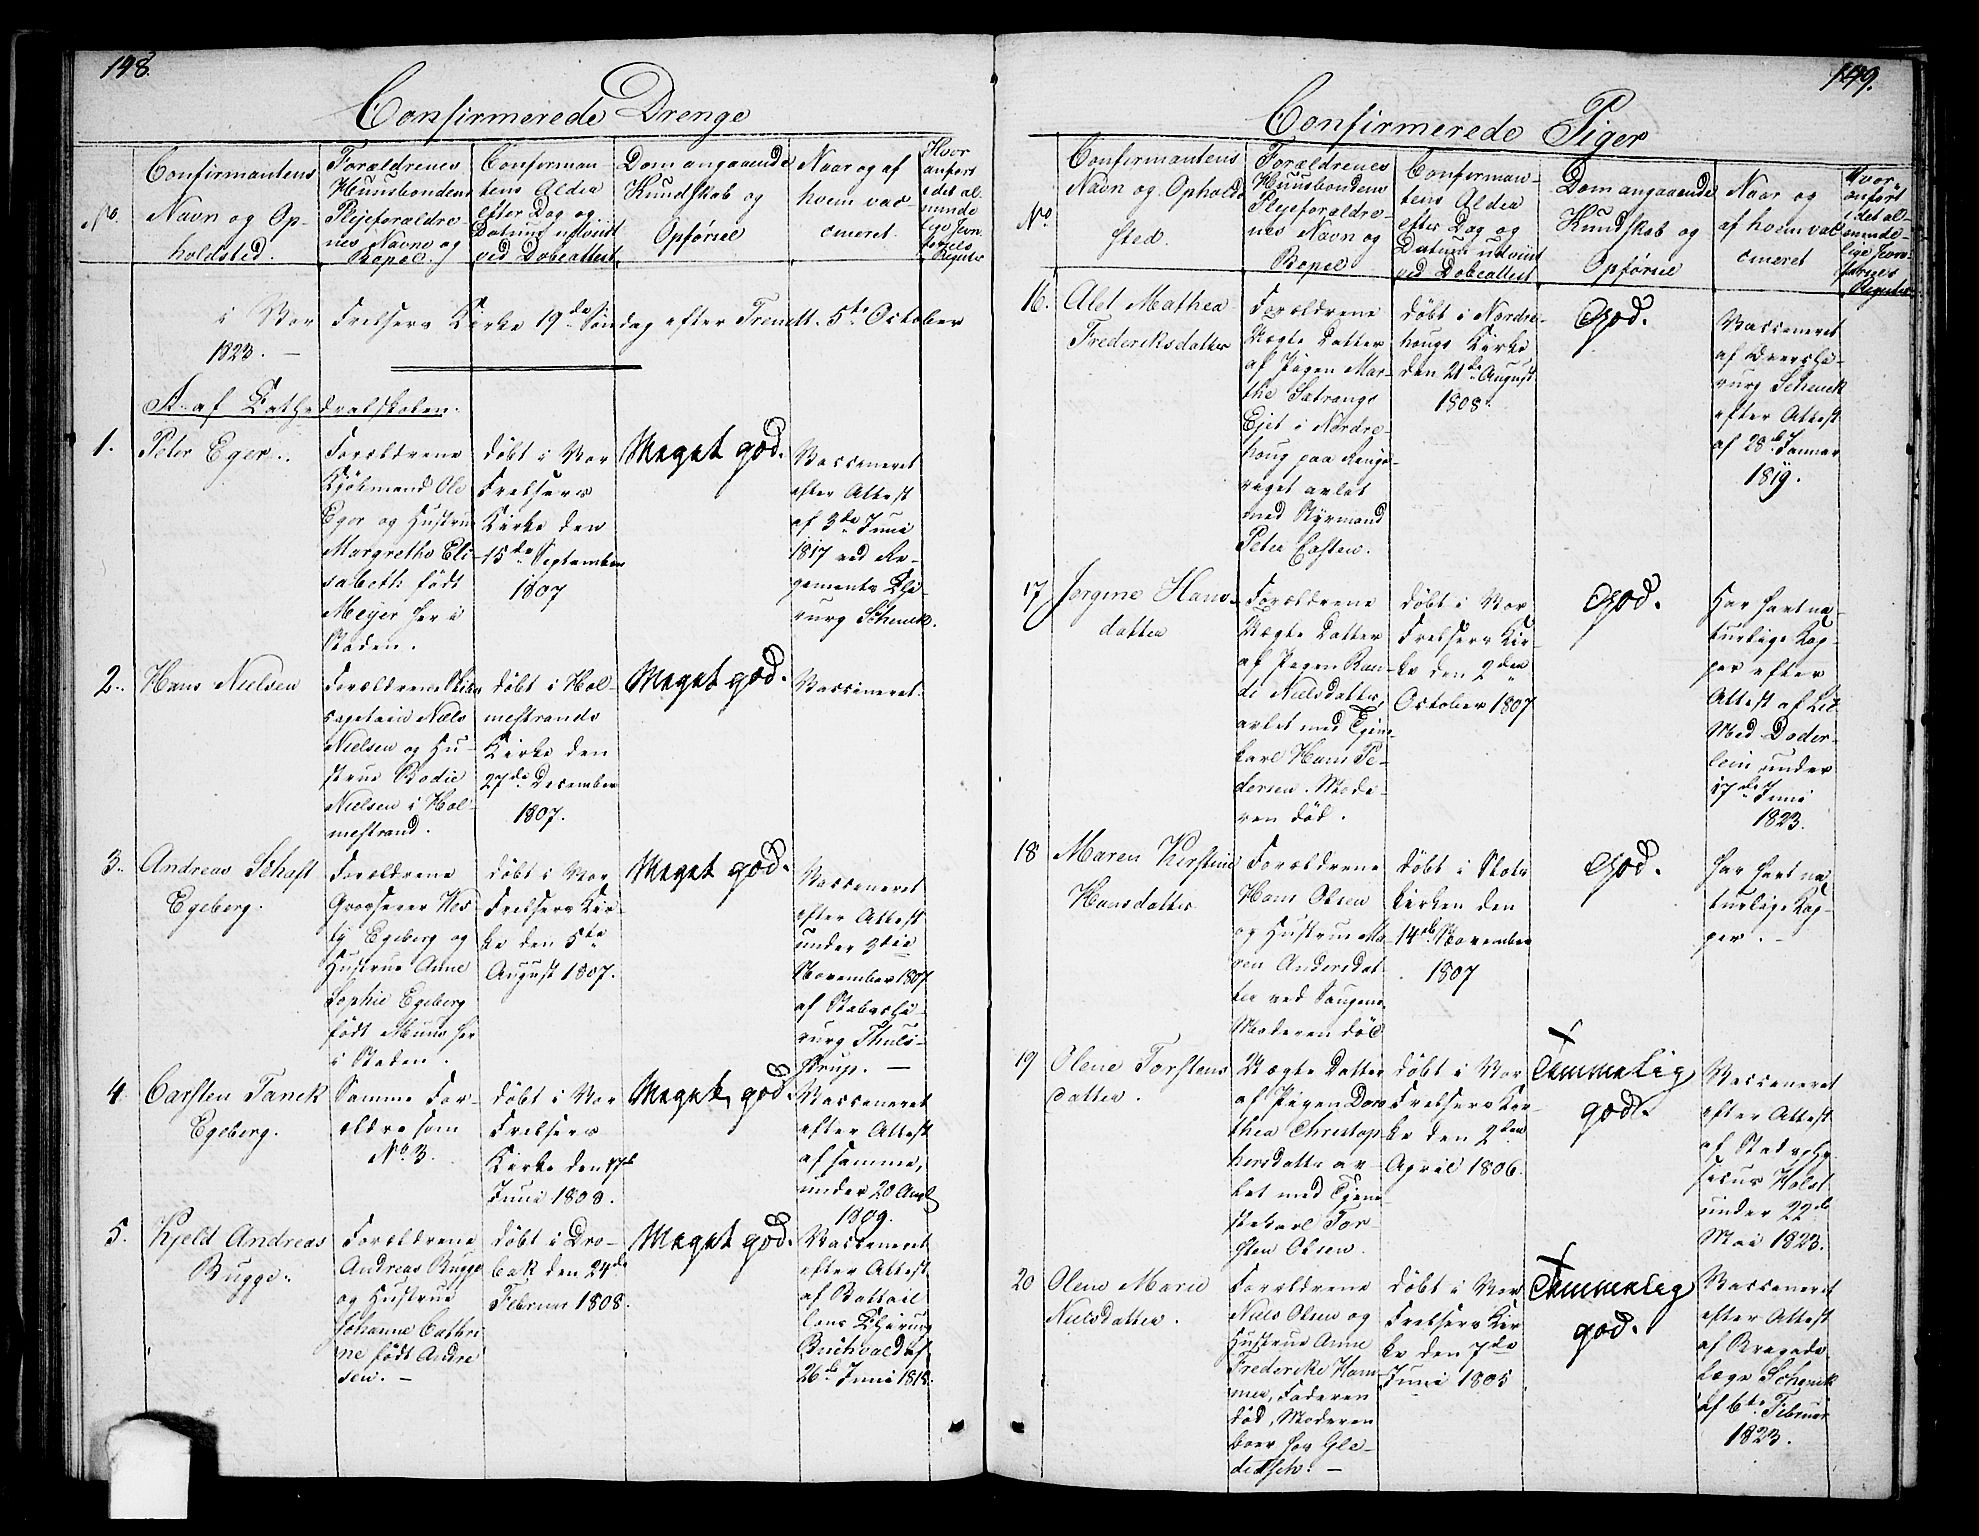 148.
Confirmerede Drenge
No.
Confirmantens
Navn og Op-
holdsted.
Forældrenes
Huusbondens
Plejeforældre-
nes Navne og
Bopæl.
Confirman-
tens Alder
efter Dag og
Datum udviist
ved Døbeattest
Dom angaaende
Kundskab og
Opførsel
Naar og af
hvem vac-
cineret.
Hvor
anført
i det al-
minde-
lige Jevn-
førels
Register
i Vor Frelsers Kirke 19de Søndag efter Trenitt. 5te October
1823. —
A. af Cathedralskolen.
1.
Peter Eger.
Forældrene
Kjøbmand Ole
Eger og Hustru
Margrethe Eli-
sabeth født
Meyer her i
Staden.
døbt i Vor
Frelsers
Kirke den
15de September
1807
Meget god.
Vaccineret
efter Attest
af 3de Juni
1817 ved Re-
gements Chi-
rurg Schenck.
2.
Hans Nielsen
Forældrene Skibs
capetain Niels
Nielsen og Hu-
strue Bodie
Nielsen i Hol-
mestrand.
døbt i Hol-
mestrands
Kirke den
27de December
1807.
Meget god.
Vaccineret.
3.
Andreas Schaft
Egeberg.
Forældrene
Grosserer Wes-
ty Egeberg og
Hustrue Anne
Sophie Egeberg
født Muus her
i Staden.
døbt i Vor
Frelsers Kir-
ke den 5te
August 1807.
Meget god.
Vaccineret
efter Attest
under 3die
November 1807
af Stabschi-
rurg Thuls-
trup. —
4.
Carsten Tanck
Egeberg.
Samme For-
ældre som
No. 3.
døbt i Vor
Frelsers
Kirke den 17de
Juni 1808.
Meget god.
Vaccineret
efter Attest
af samme,
under 20 Aug
1809.
5.
Kjeld Andreas
Bugge.
Forældrene
Andreas Bugge
og Hustrue
Johanne Cathri-
ne født Andre
sen. —
døbt i Drø-
bak den 24de
Februar 1808.
Meget god.
Vaccineret
efter Attest
af Battail
lons Chirurg
Buchvald af
26de Juni 1818.
149.
Confirmerede Piger
No.
Confirmantens
Navn og Ophold
sted.
Forældrenes
Huusbondens
Plejeforældre-
nes Navn og
Bopæl
Confirman-
tens Alder
efter Dag og
Datum udviist
ved Døbeattest
Dom angaaende
Kundskab og
Opførsel
Naar og
af hvem vac
cineret
Hvor
anført
i det al-
minde-
lige Jevn-
førelses
Register
16.
Alet Mathea
Frederiksdatter
Forældrene
Uægte Datter
af Pigen Mar-
the Satrangs
Ejet i Nordre-
houg paa Ringe-
riget avlet
med Styrmand
Peter Casten.
døbt i Nordre-
hougs Kirke
den 21de August
1808.
God.
Vaccineret
af
Schenck
efter Attest
af 28de Januar
1819.
17
Jorgine Hans-
datter
Forældrene
Uægte Datter
af Pigen Ran-
di Nielsdatter,
avlet med Tjene-
karl Hans Pe-
dersen. Mode-
ren død.
døbt i Vor
Frelsers Kir-
ke den 2den
October 1807
God.
Har havt na-
turlige Kop-
per efter
Attest af
Med Døder-
lein under
17de Juni
1823.
18
Maren Kirstine
Hansdatter
Forældrene
Hans Olsen
og Hustrue Ma-
ren Andersdat-
ter ved Saugene
Moderen død
døbt i Slots
kirken den
14de November
1807
God.
har havt na
turlige Kop-
per. —
19
Olene Torstens
datter.
Uægte Datter
af Pigen Doro
thea Christop
hersdatter av-
let med Tjene
stekarl Tor-
sten Olsen.
døbt i Vor
Frelsers Kir-
ke den 2den
April 1806.
Temmelig
god.
Vaccineret
efter Attest
af Stadsphy-
sicus Holst
under 22de
Mai 1823.
20
Olene Marie
Nielsdatter.
Forældrene
Niels Olsen og
Hustrue Anne
Frederike Ham-
mer, Faderen
død, Moderen
boer hos Gle-
ditsch. —
døbt i Vor
Frelsers Kir
ke den 7de
Juni 1805
Temmelig
god.
Vaccineret
efter Attest
af Bregade
læge Schenck
af 6te Februar
1823.